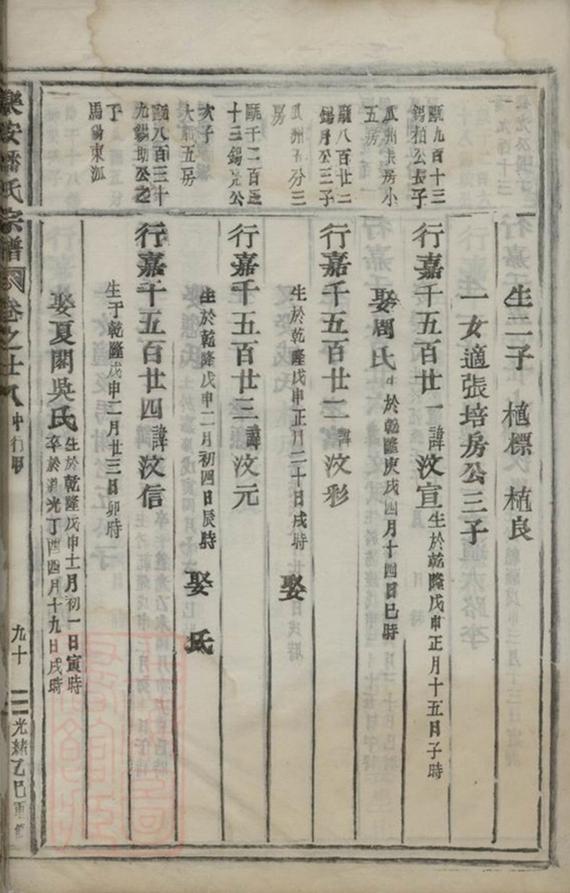 生二子 植標 植良
一女適張培房公三子
甌九百十三
錫柏公長子
瓜州長房小
五房
行嘉千五百廿一諱汶宣
生於乾隆戊申正月十五日子時
娶周氏
生於乾隆庚戌四月十四日巳時
甌八百廿二
錫月公三子
瓜洲 分三
房
行嘉千五百廿二諱汶彩
生於乾隆戊申正月二十日戌時
娶
甌千二百
十三錫 公
次子
大 五房
行嘉千五百廿三諱汶元
生於乾隆戊申二月初四日辰時
娶 氏
甌八百三十
九錫助公之
子
馬錫東派
行嘉千五百廿四諱汶信
生于乾隆戊申二月廿三日卯時
娶夏閣吳氏
生於乾隆戊申十一月初一日寅時
卒於道光丁酉四月十九日戌時
樂安潘氏宗譜
卷之廿八
九十三
光緒乙巳重修